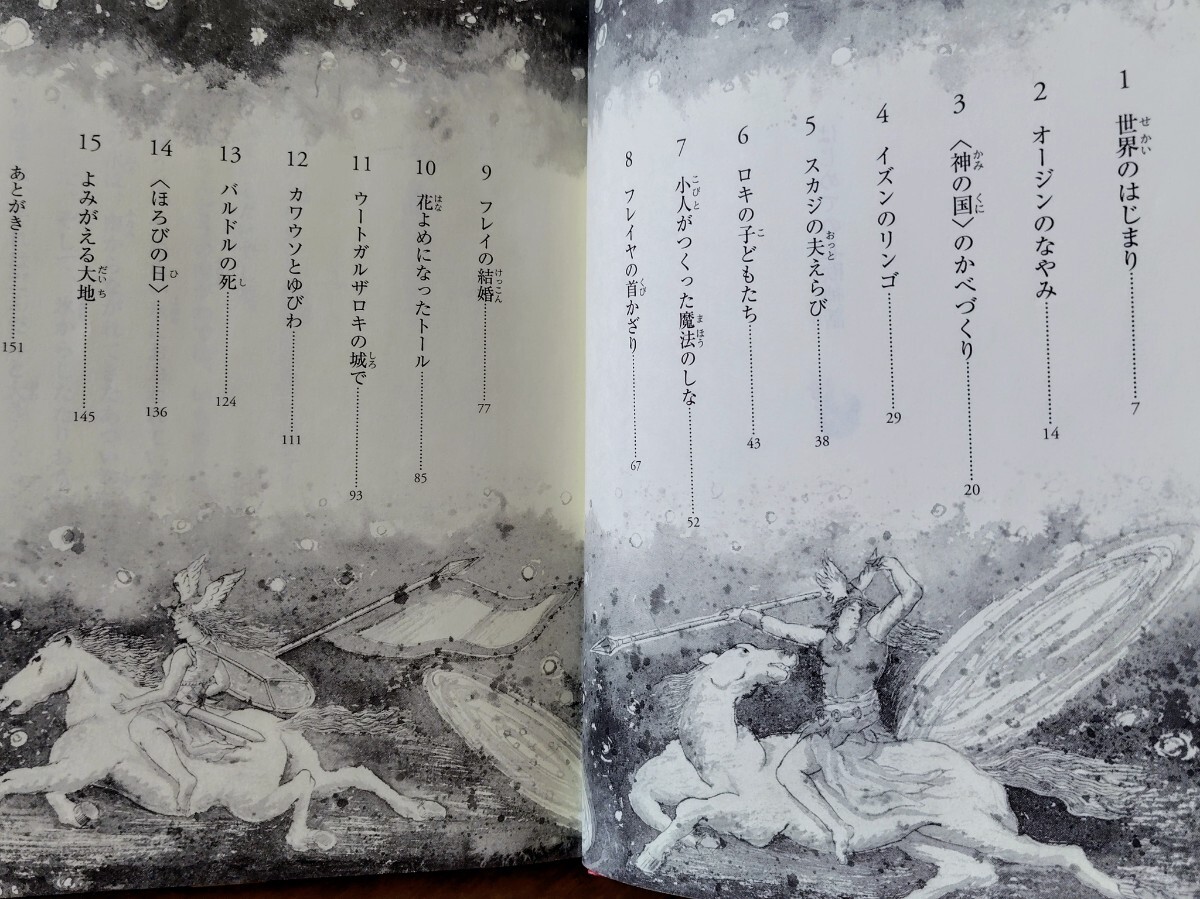 1 世界のはじまり 7
2 オージンのなやみ 14
3 〈神の国〉のかべづくり 20
4 イズンのリンゴ 29
5 スカジの夫えらび 38
6 ロキの子どもたち 43
7 小人がつくった魔法のしな 52
8 フレイヤの首かざり 67
9 フレイの結婚 77
10 花よめになったトール 85
11 ウートガルザロキの城で 93
12 カワウソとゆびわ 111
13 バルドルの死 124
14 〈ほろびの日〉 136
15 よみがえる大地 145
あとがき 151